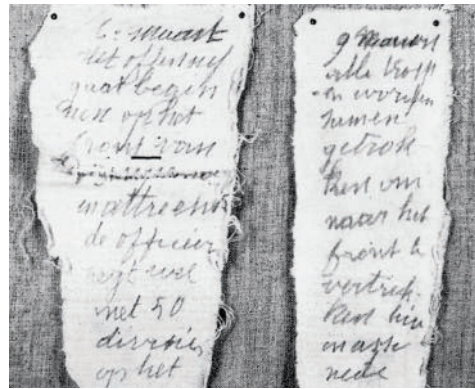 6 maart
Het offensief
gaat begin
nen op het
front van
de officier
zegt wel
met 50
divisies
op het
9 Maart
alle troep
en worden
samen
getrok
ken om
naar het
front te
vertrek
ken hier